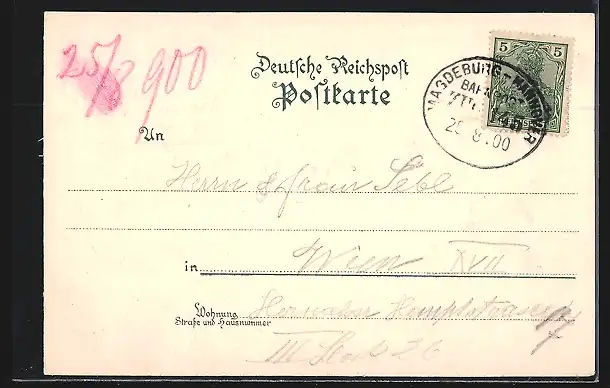 25/8 900
Deutsche Reichspost
Postkarte
5 5
MAGDEBURG - HANNOVER
BAHNPOST
25 8 00
An
Herrn & Frau
in Wien XVII
Wohnung Hernalser Hauptstrasse
Straße und Hausnummer
III Stock 26